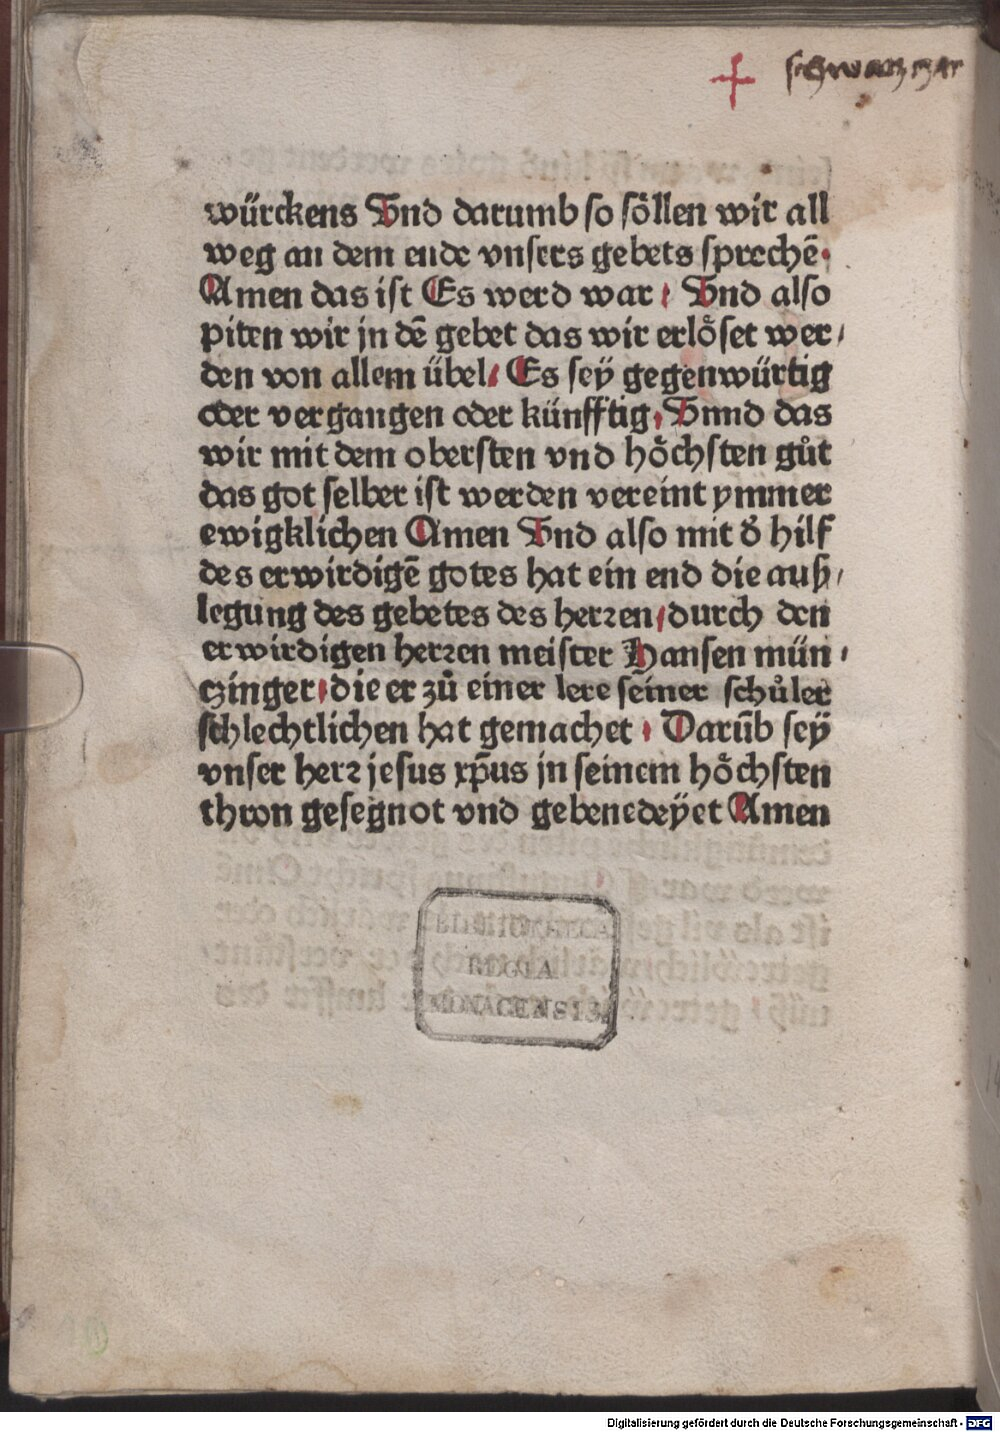 würckens Vnd darumb so söllen wir all
weg an dem ende vnsers gebets sprechē.
Amen das ist Es werd war / Vnd also
piten wir in dē gebet das wir erlöset wer/
den von allem übel / Es sey̎ gegenwürtig
oder vergangen oder künfftig / Vnnd das
wir mit dem obersten vnd höchsten gůt
das got selber ist werden vereint ymmer
ewigklichen Amen Vnd also mit d̓ hilf
des erwirdigē gotes hat ein end die auß/
legung des gebetes des herꝛen / durch den
erwirdigen herꝛen meister Hansen mün/
czinger / die er zů einer lere seiner schůler
schlechtlichen hat gemachet / Darūb sey̎
vnser herꝛ jesus xp̄us in seinem höchsten
thron gesegnot vnd gebenedey̎et Amen
BIBLIOTHECA
REGIA
MONACENSIS.
Digitalisierung gefördert durch die Deutsche Forschungsgemeinschaft - DFG